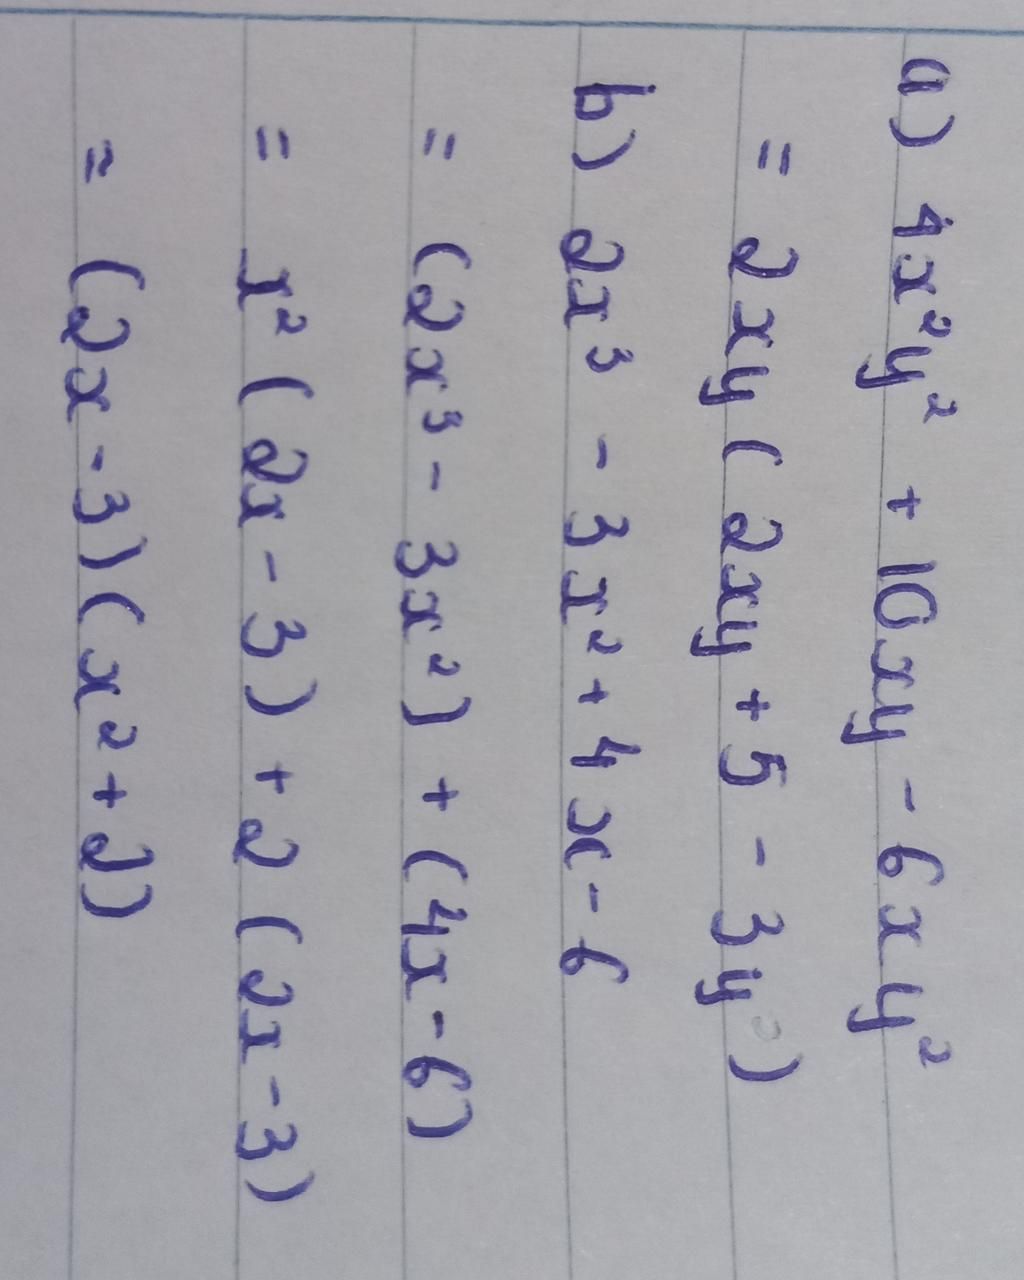 a) 4x²y² + 10xy - 6xy²
= 2xy(2xy + 5 - 3y)
b) 2x³ - 3x² + 4x - 6
= (2x³ - 3x²) + (4x - 6)
= x²(2x - 3) + 2(2x - 3)
= (2x - 3)(x² + 2)